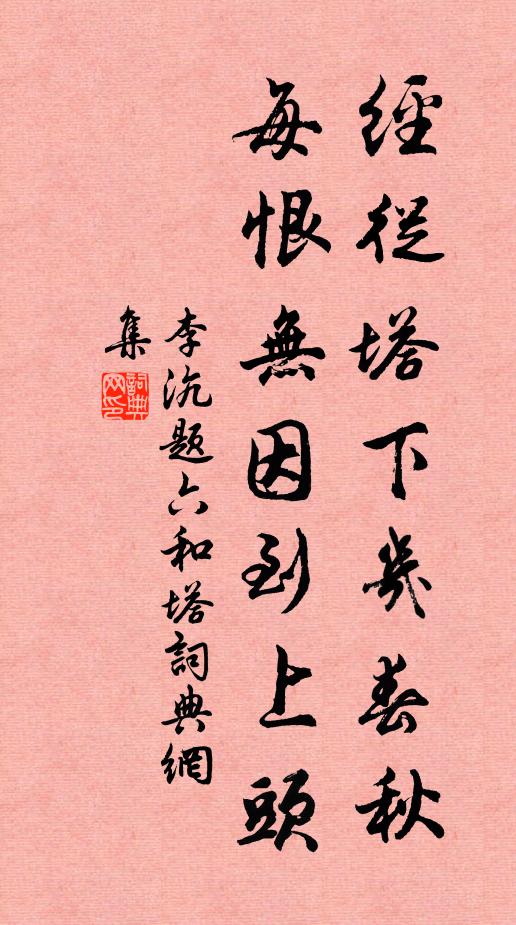 經從塔下幾春秋
每恨無因到上頭
李沇題六和塔詞典網
集
詞典網印